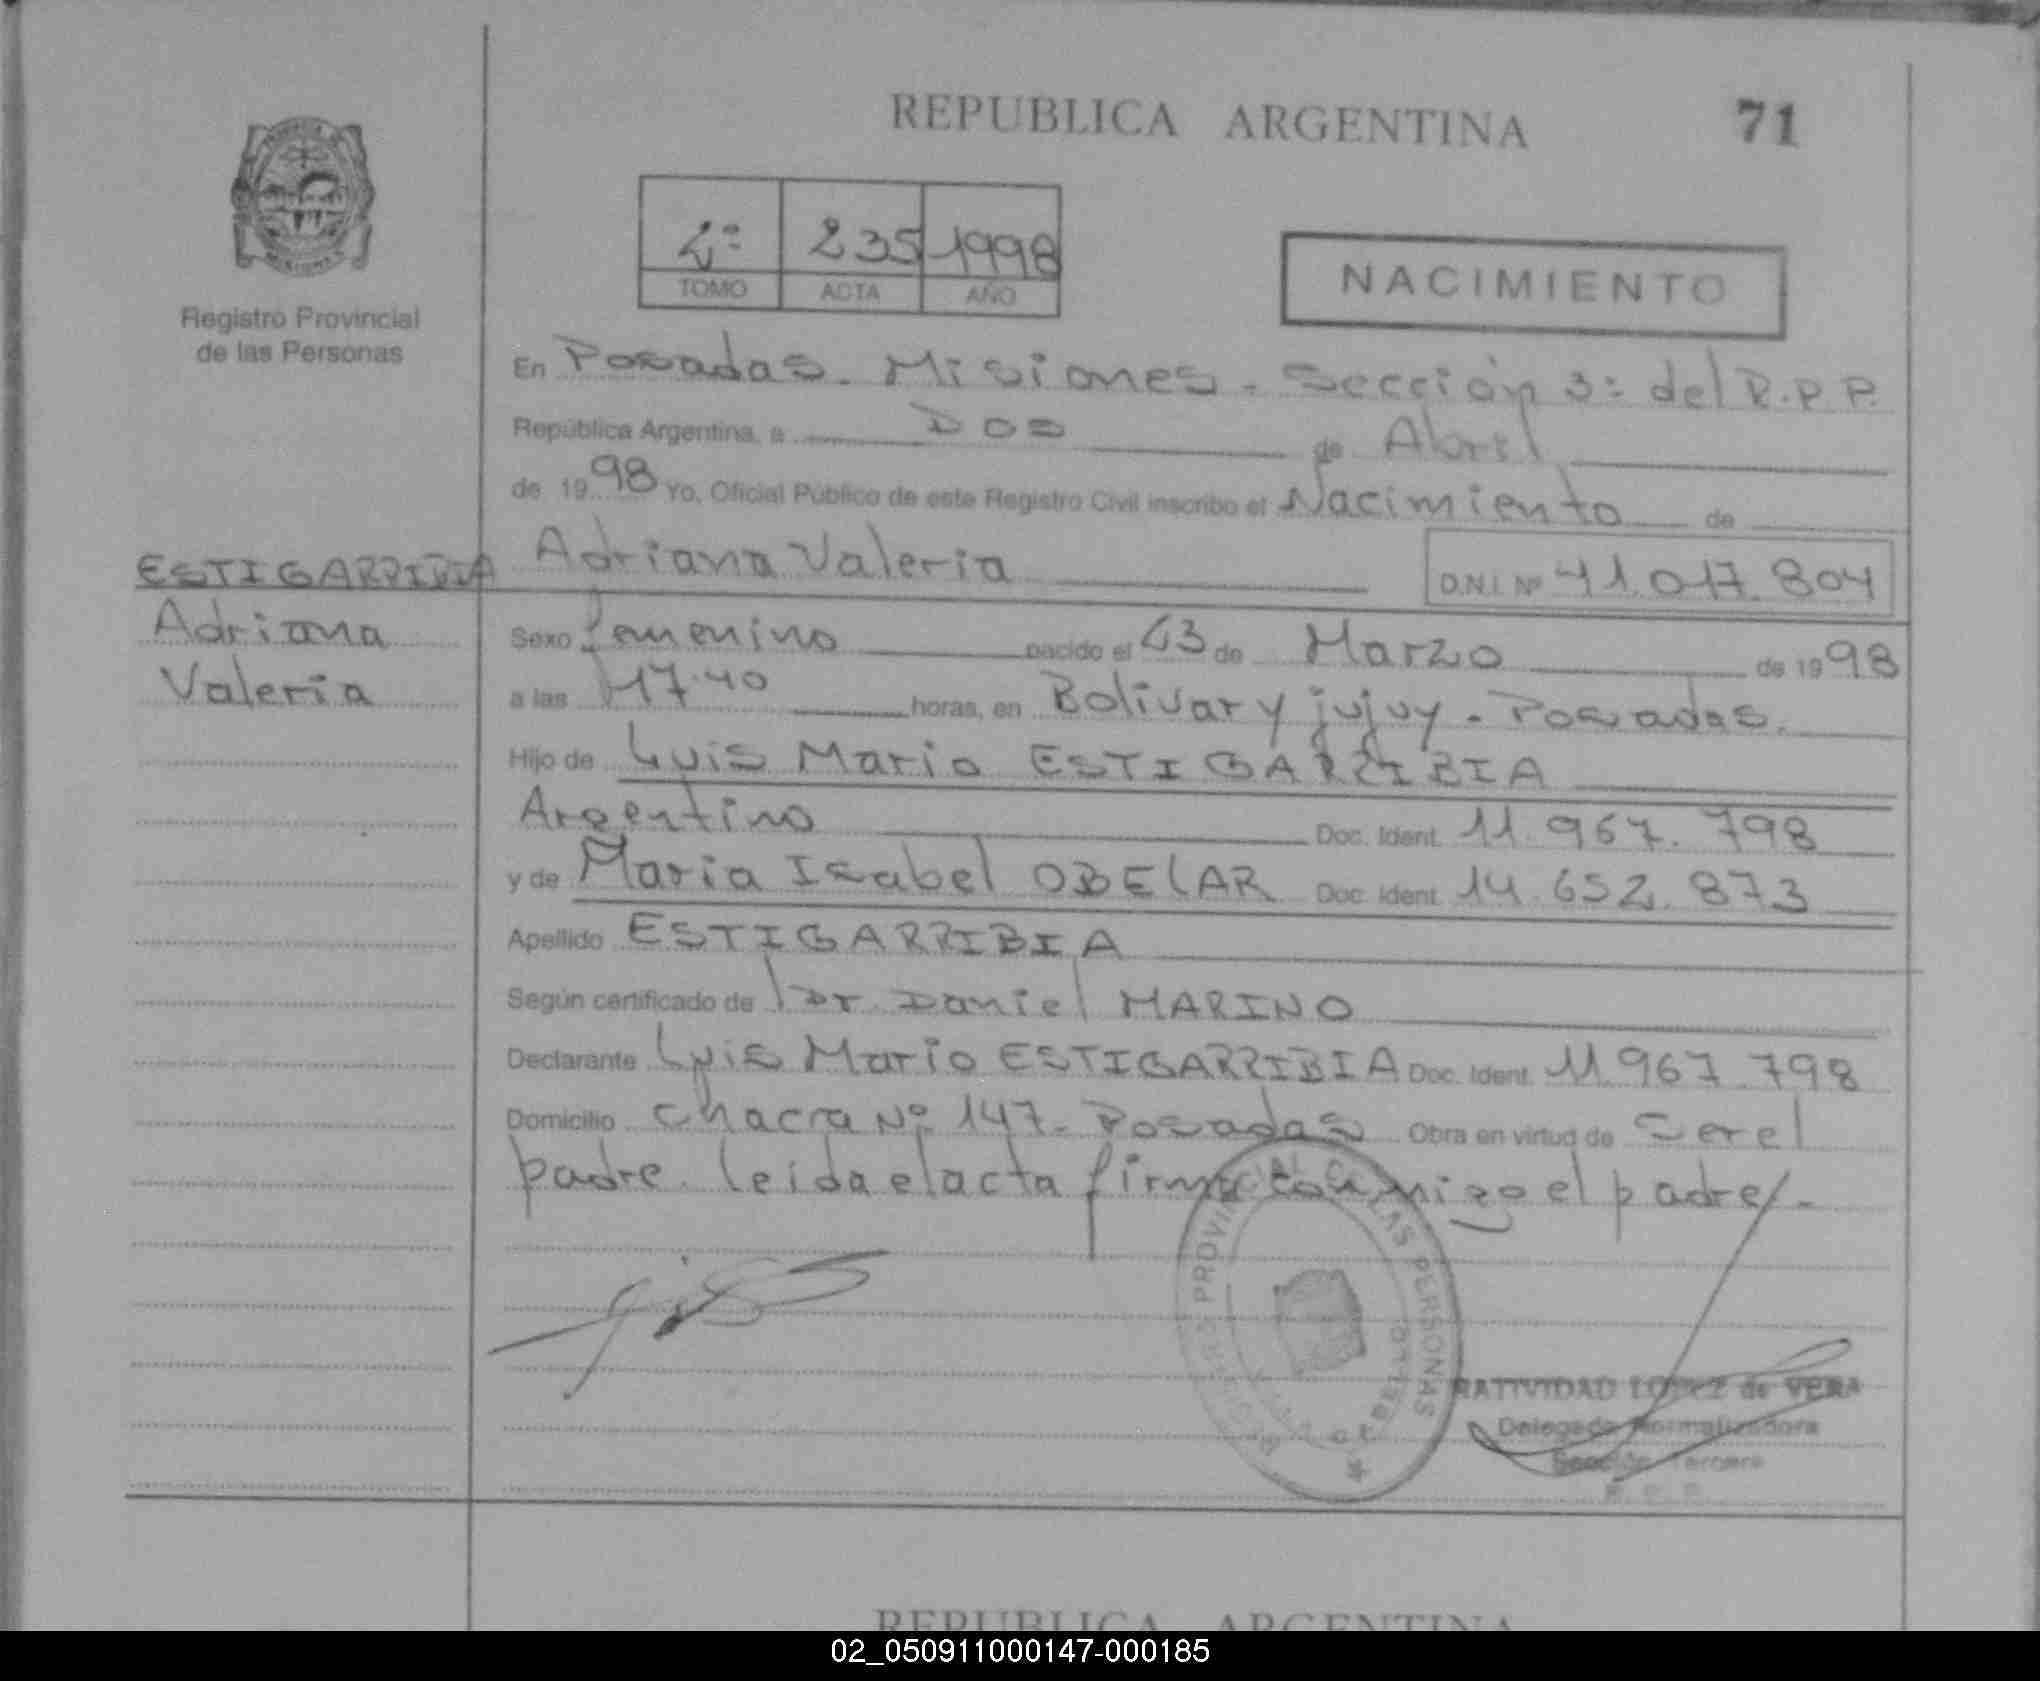 REPUBLICA ARGENTINA 71
2º 235 1998
TOMO ACTA AÑO
NACIMIENTO
Registro Provincial
de las Personas
En Posadas. Misiones. Sección 3º del R.P.P.
República Argentina, a Dos de Abril
de 1998 Yo, Oficial Público de este Registro Civil inscribo el Nacimiento de
Adriana Valeria D.N.I. Nº 41.017.804
ESTIGARRIBIA
Adriana
Valeria
Sexo Femenino nacido el 23 de Marzo de 1998
a las 17.40 horas, en Bolivar y jujuy. Posadas.
Hijo de Luis Mario ESTIGARRIBIA
Argentino Doc. Ident. 11.967.798
y de Maria Isabel OBELAR Doc. Ident. 14.652.873
Apellido ESTIGARRIBIA
Según certificado de Dr. Daniel MARINO
Declarante Luis Mario ESTIGARRIBIA Doc. Ident. 11.967.798
Domicilio Chacra Nº 147. Posadas Obra en virtud de Ser el
padre. leida el acta firma conmigo el padre.-
PROVINCIAL DE LAS PERSONAS
NATIVIDAD LOPEZ de VERA
Delegada Normalizadora
Sección Tercera
R. P. P.
REPUBLICA ARGENTINA
02_050911000147-000185